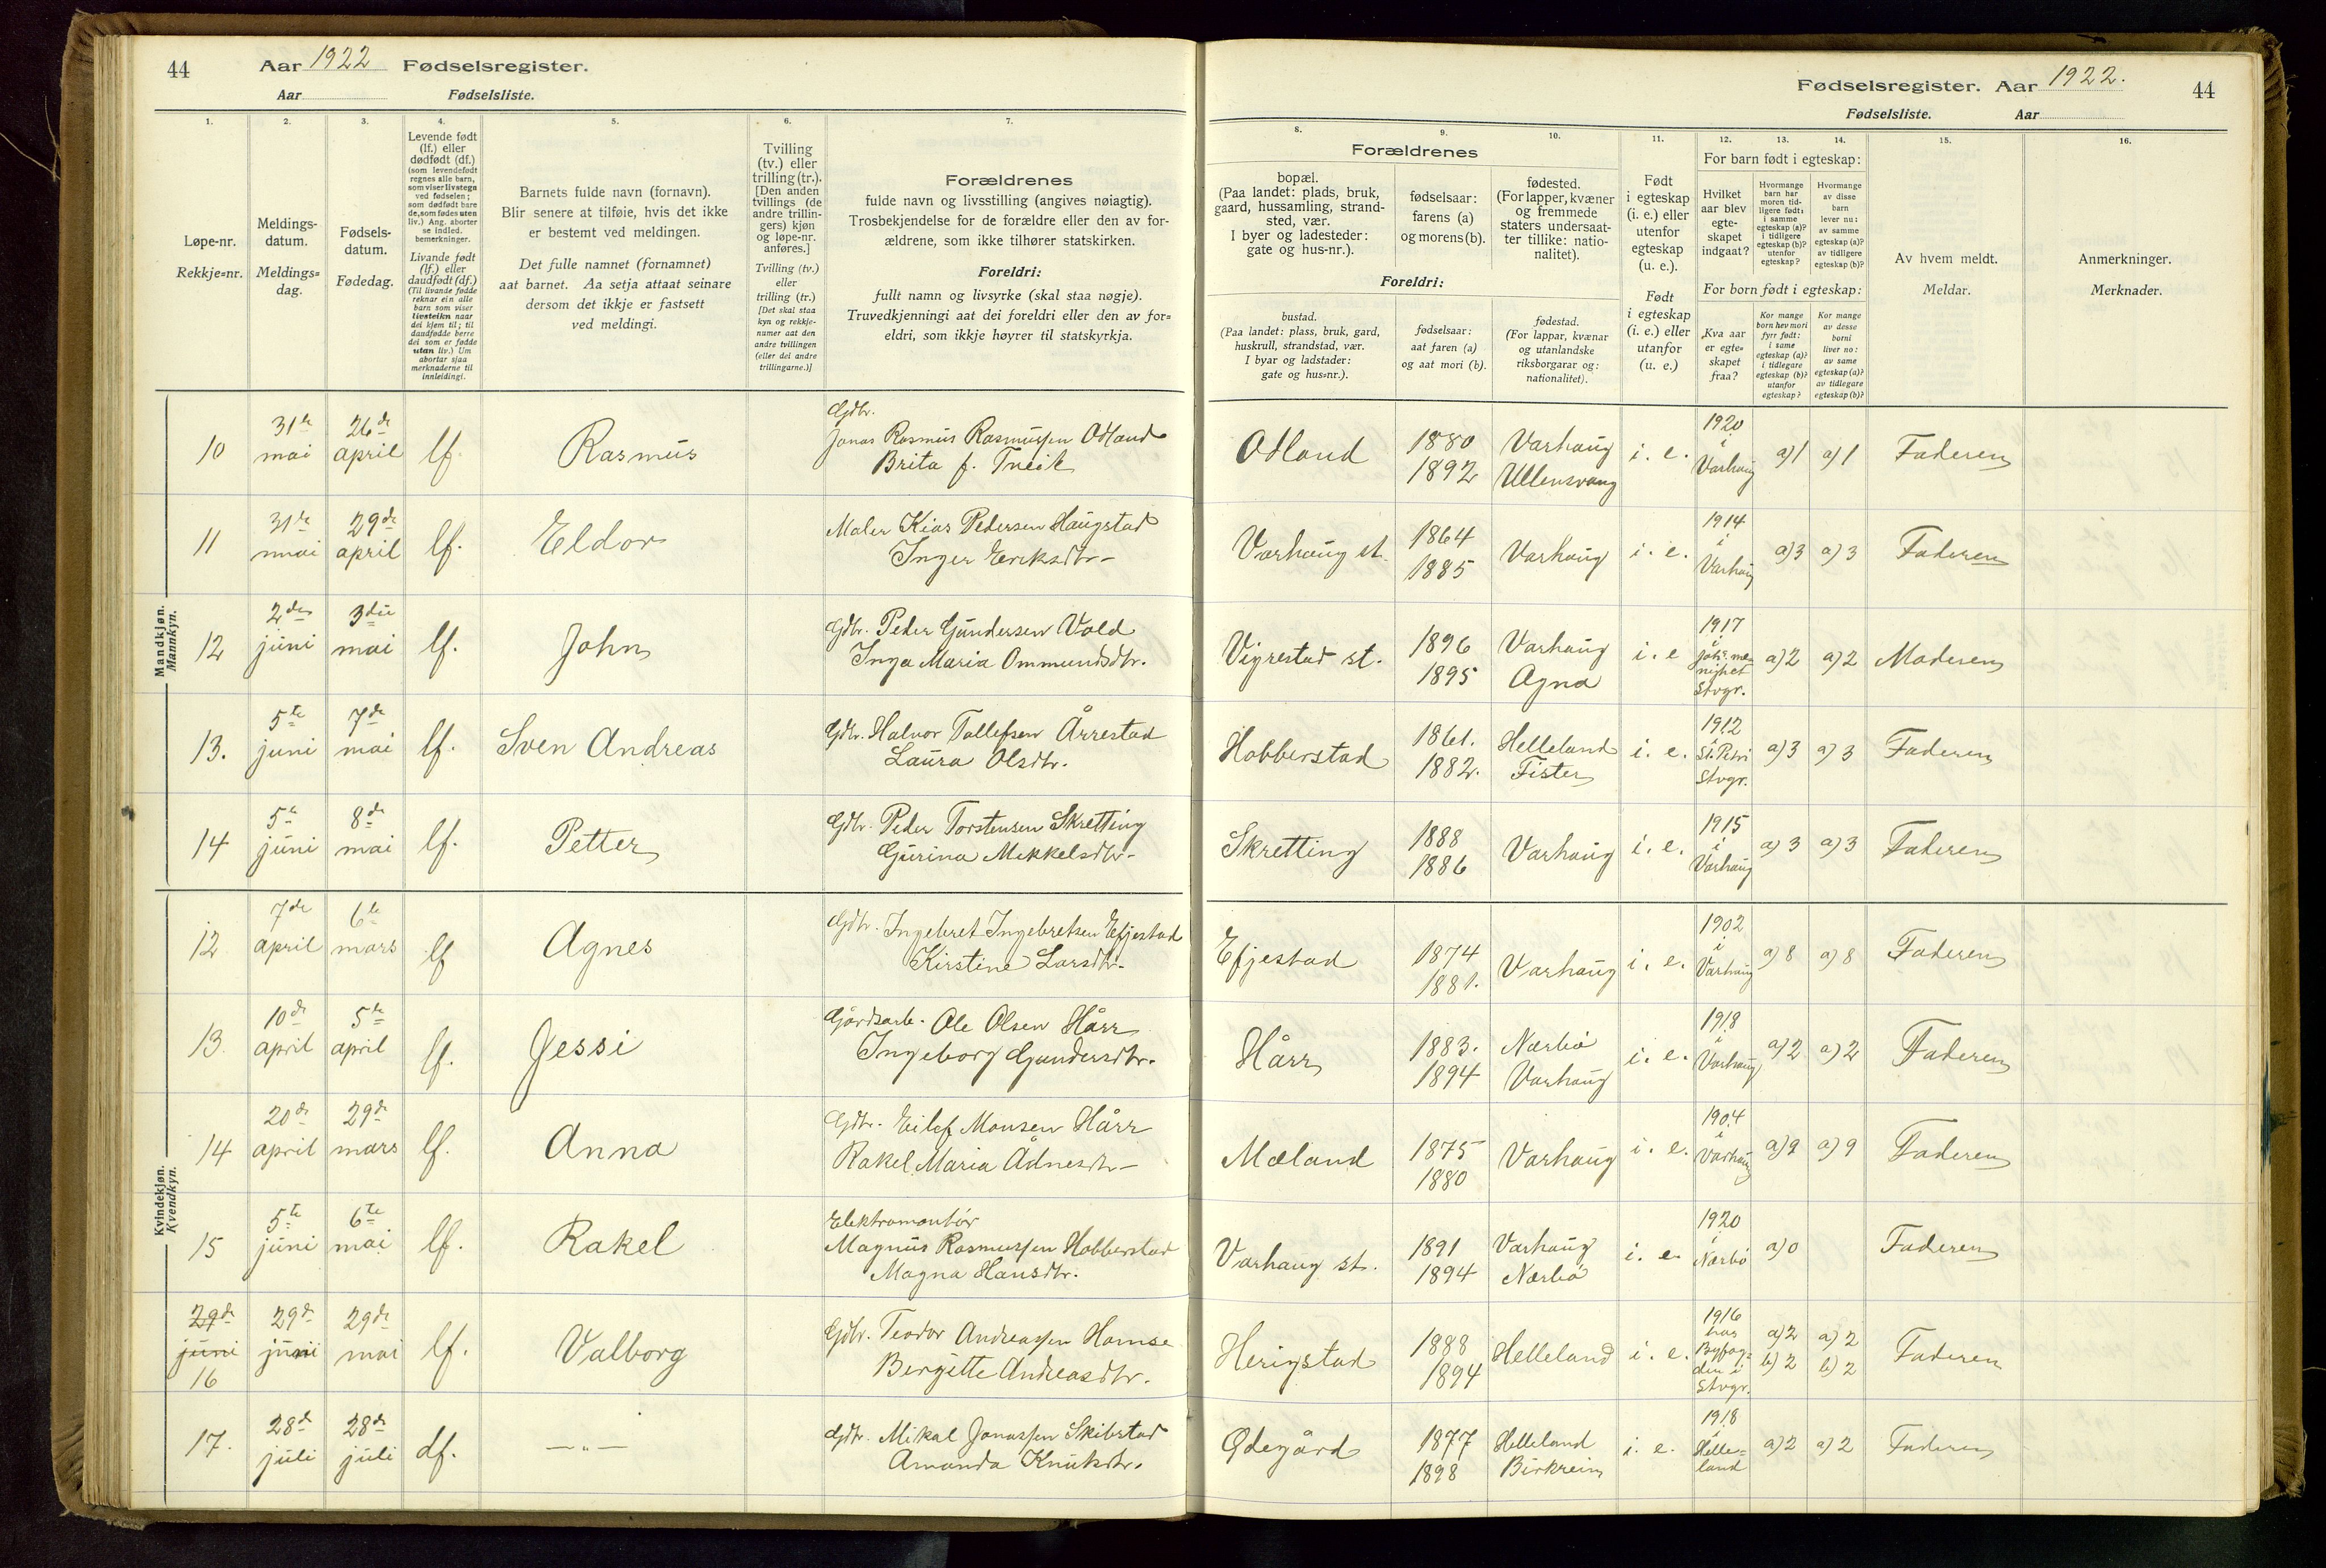 44 Aar 1922 Fødselsregister.
Aar Fødselsliste.
Fødselsregister. Aar 1922. 44
Fødselsliste. Aar
1.
Løpe-nr.
Rekkje=nr.
2.
Meldings-
datum.
Meldings=
dag.
3.
Fødsels-
datum.
Fødedag.
4.
Levende født
(lf.) eller
dødfødt (df.)
(som levendefødt
regnes alle barn,
som viser livstegn
ved fødselen;
som dødfødt bare
de, som fødes uten
liv.) Ang. aborter
se indled.
bemerkninger.
Livande født
(lf.) eller
daudfødt (df.)
(Til livande fødde
reknar ein alle
barn som viser
livsteikn naar
dei kjem til; til
daudfødde berre
dei som er fødde
utan liv.) Um
abortar sjaa
merknaderne til
innleidingi.
5.
Barnets fulde navn (fornavn).
Blir senere at tilføie, hvis det ikke
er bestemt ved meldingen.
Det fulle namnet (fornamnet)
aat barnet. Aa setja attaat seinare
dersom det ikkje er fastsett
ved meldingi.
6.
Tvilling
(tv.) eller
trilling (tr.).
[Den anden
tvillings (de
andre trillin-
gers) kjøn
og løpe-nr.
anføres.]
Tvilling (tv.)
eller
trilling (tr.)
[Det skal staa
kyn og rekkje-
numer aat den
andre tvillingen
(eller dei andre
trillingarne.)]
7.
Forældrenes
fulde navn og livsstilling (angives nøiagtig).
Trosbekjendelse for de forældre eller den av for-
ældrene, som ikke tilhører statskirken.
Foreldri:
fullt namn og livsyrke (skal staa nøgje).
Truvedkjenningi aat dei foreldri eller den av for=
eldri, som ikkje høyrer til statskyrkja.
8.
Forældrenes
bopæl.
(Paa landet: plads, bruk,
gaard, hussamling, strand-
sted, vær.
I byer og ladesteder:
gate og hus-nr.).
Foreldri:
bustad.
(Paa landet: plass, bruk, gard,
huskrull, strandstad, vær.
I byar og ladstader:
gate og hus=nr.).
9.
fødselsaar:
farens (a)
og morens (b).
fødselsaar:
aat faren (a)
og aat mori (b).
10.
fødested.
(For lapper, kvæner
og fremmede
staters undersaat-
ter tillike: natio-
nalitet).
fødestad.
(For lappar, kvænar
og utanlandske
riksborgarar og:
nationalitet).
11.
Født
i egteskap
(i. e.) eller
utenfor
egteskap
(u. e.).
Født
i egteskap
(i. e.) eller
utanfor
(u. e.)
12.
For barn født i egteskap:
Hvilket
aar blev
egte-
skapet
indgaat?
For born født i egteskap:
Kva aar
er egte=
skapet
fraa?
13.
Hvormange
barn har
moren tid-
ligere født:
i samme
egteskap (a)?
i tidligere
egteskap (b)?
utenfor
egteskap?
Kor mange
born hev mori
fyrr født:
i same
egteskap (a)?
i tidlegare
egteskap (b)?
utanfor
egteskap?
14.
Hvormange
av disse
barn
lever nu:
av samme
egteskap (a)?
av tidligere
egteskap (b)?
Kor mange
av desse
borni
liver no:
av same
egteskap (a)?
av tidlegare
egteskap (b)?
15.
Av hvem meldt.
Meldar.
16.
Anmerkninger.
Merknader.
Mandkjøn.
Mannkyn.
10 31te mai 26de april lf. Rasmus
Gdbr.
Jonas Rasmus Rasmussen Odland
Brita f. Tveit
Odland 1880 1892 Varhaug Ullensvang i. e. 1920 i Varhaug a)1 a)1 Faderen
11 31te mai 29de april lf. Eldor
Maler Kias Pedersen Haugstad
Inger Eriksdtr.
Varhaug st. 1864 1885 Varhaug i. e. 1914 i Varhaug a)3 a)3 Faderen
12 2den juni 3die mai lf. John
Gdbr. Peder Gundersen Vold
Inga Maria Ommundsdtr.
Vigrestad st. 1896 1895 Varhaug Ogna i. e 1917 i Joh's me- nighet Stvgr. a)2 a)2 Moderen
13. 5te juni 7de mai lf. Sven Andreas
Gdbr. Halvor Tollefsen Årrestad
Laura Olsdtr.
Hobberstad 1861. 1882. Helleland Fister i. e. 1912 i St. Petri Stvgr. a)3 a)3 Faderen
14 5te juni 8de mai lf. Petter
Gdbr. Peder Torstensen Skretting
Gurina Mikkelsdtr.
Skretting 1888 1886 Varhaug i. e. 1915 i Varhaug a)3 a)3 Faderen
Kvindekjøn.
Kvendkyn.
12 7de april 6te mars lf Agnes
Gdbr. Ingebret Ingebretsen Efjestad
Kirstine Larsdtr.
Efjestad 1874 1881. Varhaug i. e. 1902 i Varhaug a)8 a)8 Faderen
13. 10de april 5te april lf. Jessi
Gårdsarb. Ole Olsen Hårr
Ingeborg Gundersdtr.
Hårr 1883. 1894 Nærbø Varhaug i. e. 1918 i Varhaug a)2 a)2 Faderen
14 20de april 29de mars lf. Anna
Gdbr. Eilef Monsen Hårr
Rakel Maria Ådnesdtr.
Mæland 1875 1880 Varhaug i. e. 1904 i Varhaug a)9 a)9 Faderen
15 5te juni 6te mai lf. Rakel
Elektromontør
Magnus Rasmussen Hobberstad
Magna Hansdtr.
Varhaug st. 1891 1894 Varhaug Nærbø i. e. 1920 i Nærbø a)0 Faderen
29de juni
16 29de juni 29de mai lf. Valborg
Gdbr. Teodor Andreassen Homse
Bergitte Andreasdtr.
Herigstad 1888 1894 Helleland i. e. 1916 hos Byfog- den i Stvgr. a)2 b)2 a)2 b)2 Faderen
17. 28de juli 28de juli df. — " —
Gdbr. Mikal Jonassen Skibstad
Amanda Knutsdtr.
Ødegård 1877 1898 Helleland Birkreim i. e. 1918 i Helle- land a)2 a)2 Faderen